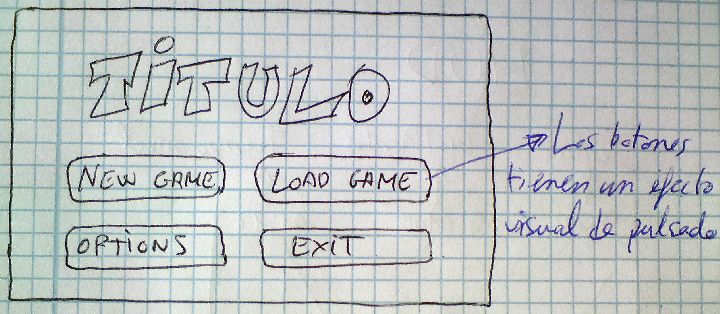 TiTULO
NEW GAME
LOAD GAME
OPTIONS
EXIT
Los botones
tienen un efecto
visual de pulsado